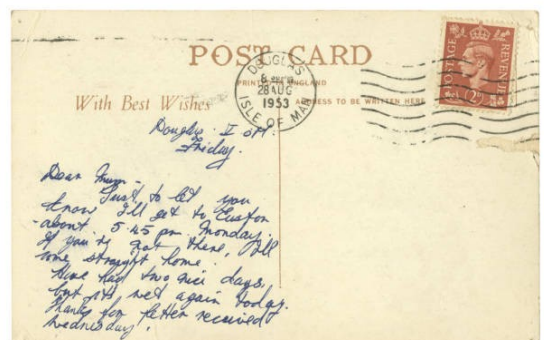 POST CARD
PRINTED IN ENGLAND
With Best Wishes
ADDRESS TO BE WRITTEN HERE
DOUGLAS
28 AUG
1953
ISLE OF MAN
POSTAGE
REVENUE
Douglas. I of M.
Friday.
Dear Mum –
Just to let you
know I'll get to Euston
about 5.45 pm Monday.
If you're not there, I'll
come straight home.
Have had two nice days.
but its wet again today.
Thanks for letter received
Wednesday.